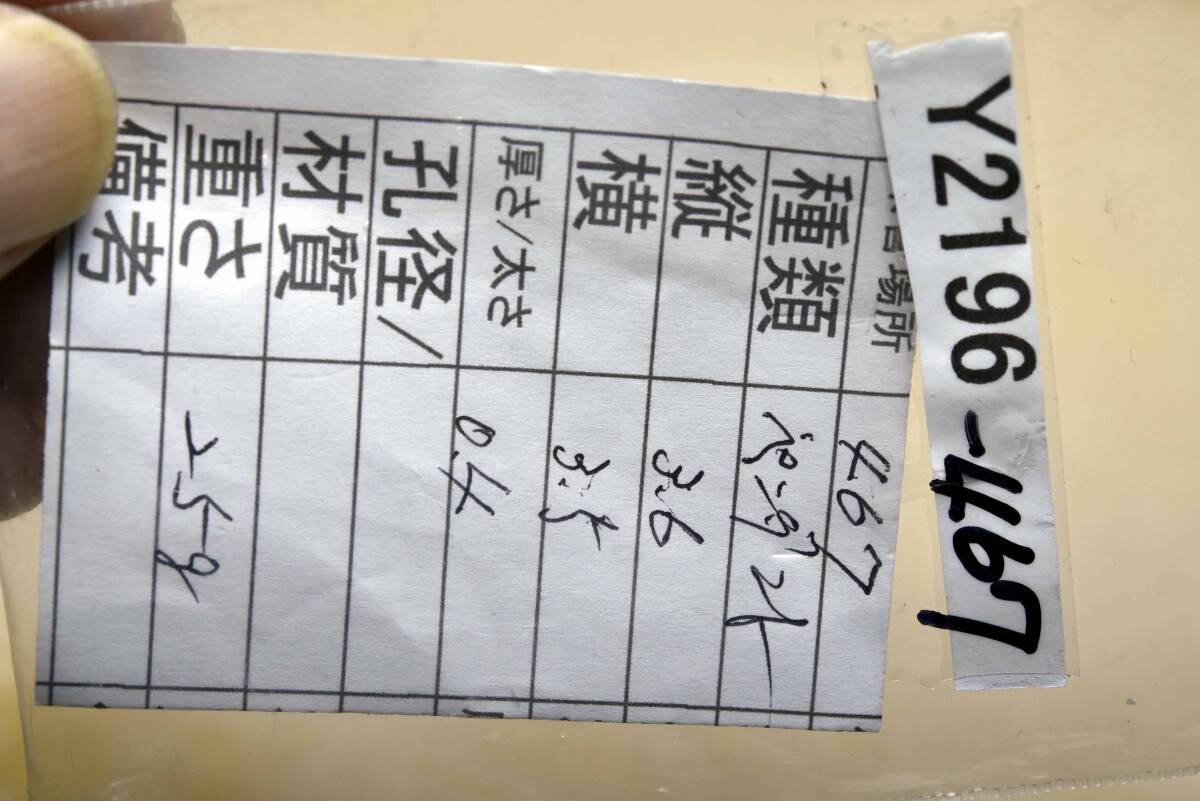 Y2196-467
場所 467
種類 ペンダント
縦 3.6
横 3.5
厚さ/太さ 0.4
孔径/
材質
重さ 25g
備考